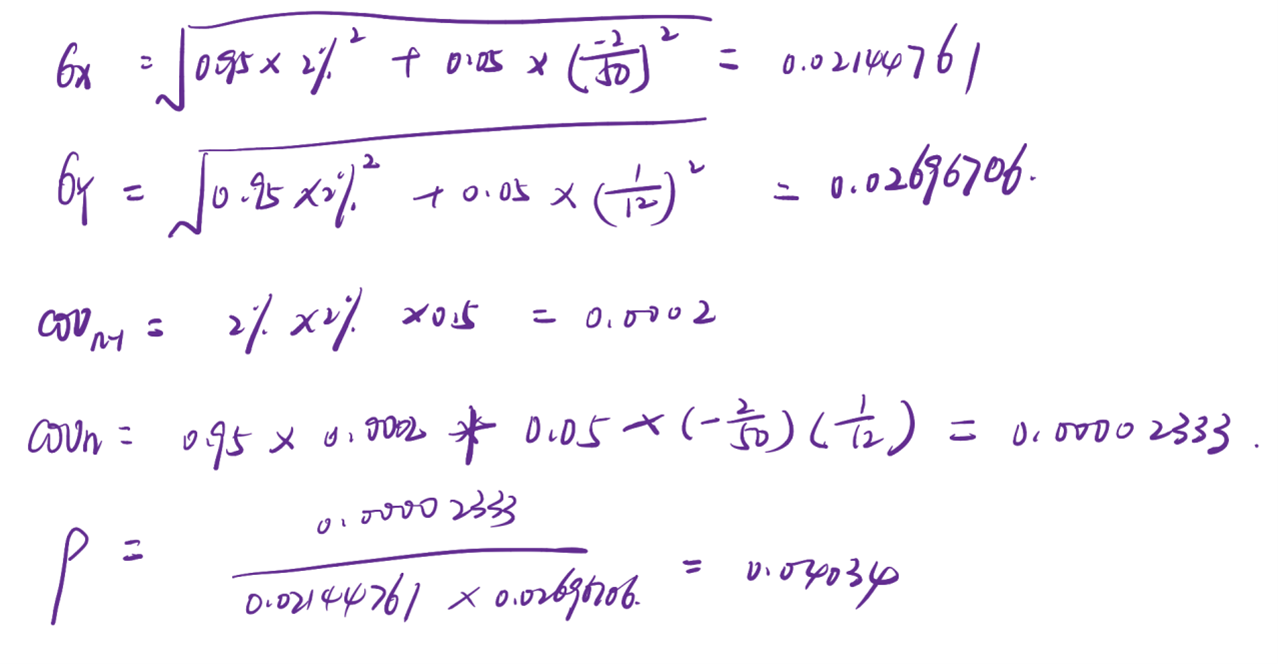 6x = √(0.95 × 2%² + 0.05 × (-2/50)²) = 0.02144761
6y = √(0.95 × 2%² + 0.05 × (1/12)²) = 0.02696706.
cov n-1 = 2% × 2% × 0.5 = 0.0002
covn = 0.95 × 0.0002 + 0.05 × (-2/50)(1/12) = 0.00002333.
ρ = 0.00002333 / (0.02144761 × 0.02696706.) = 0.04034